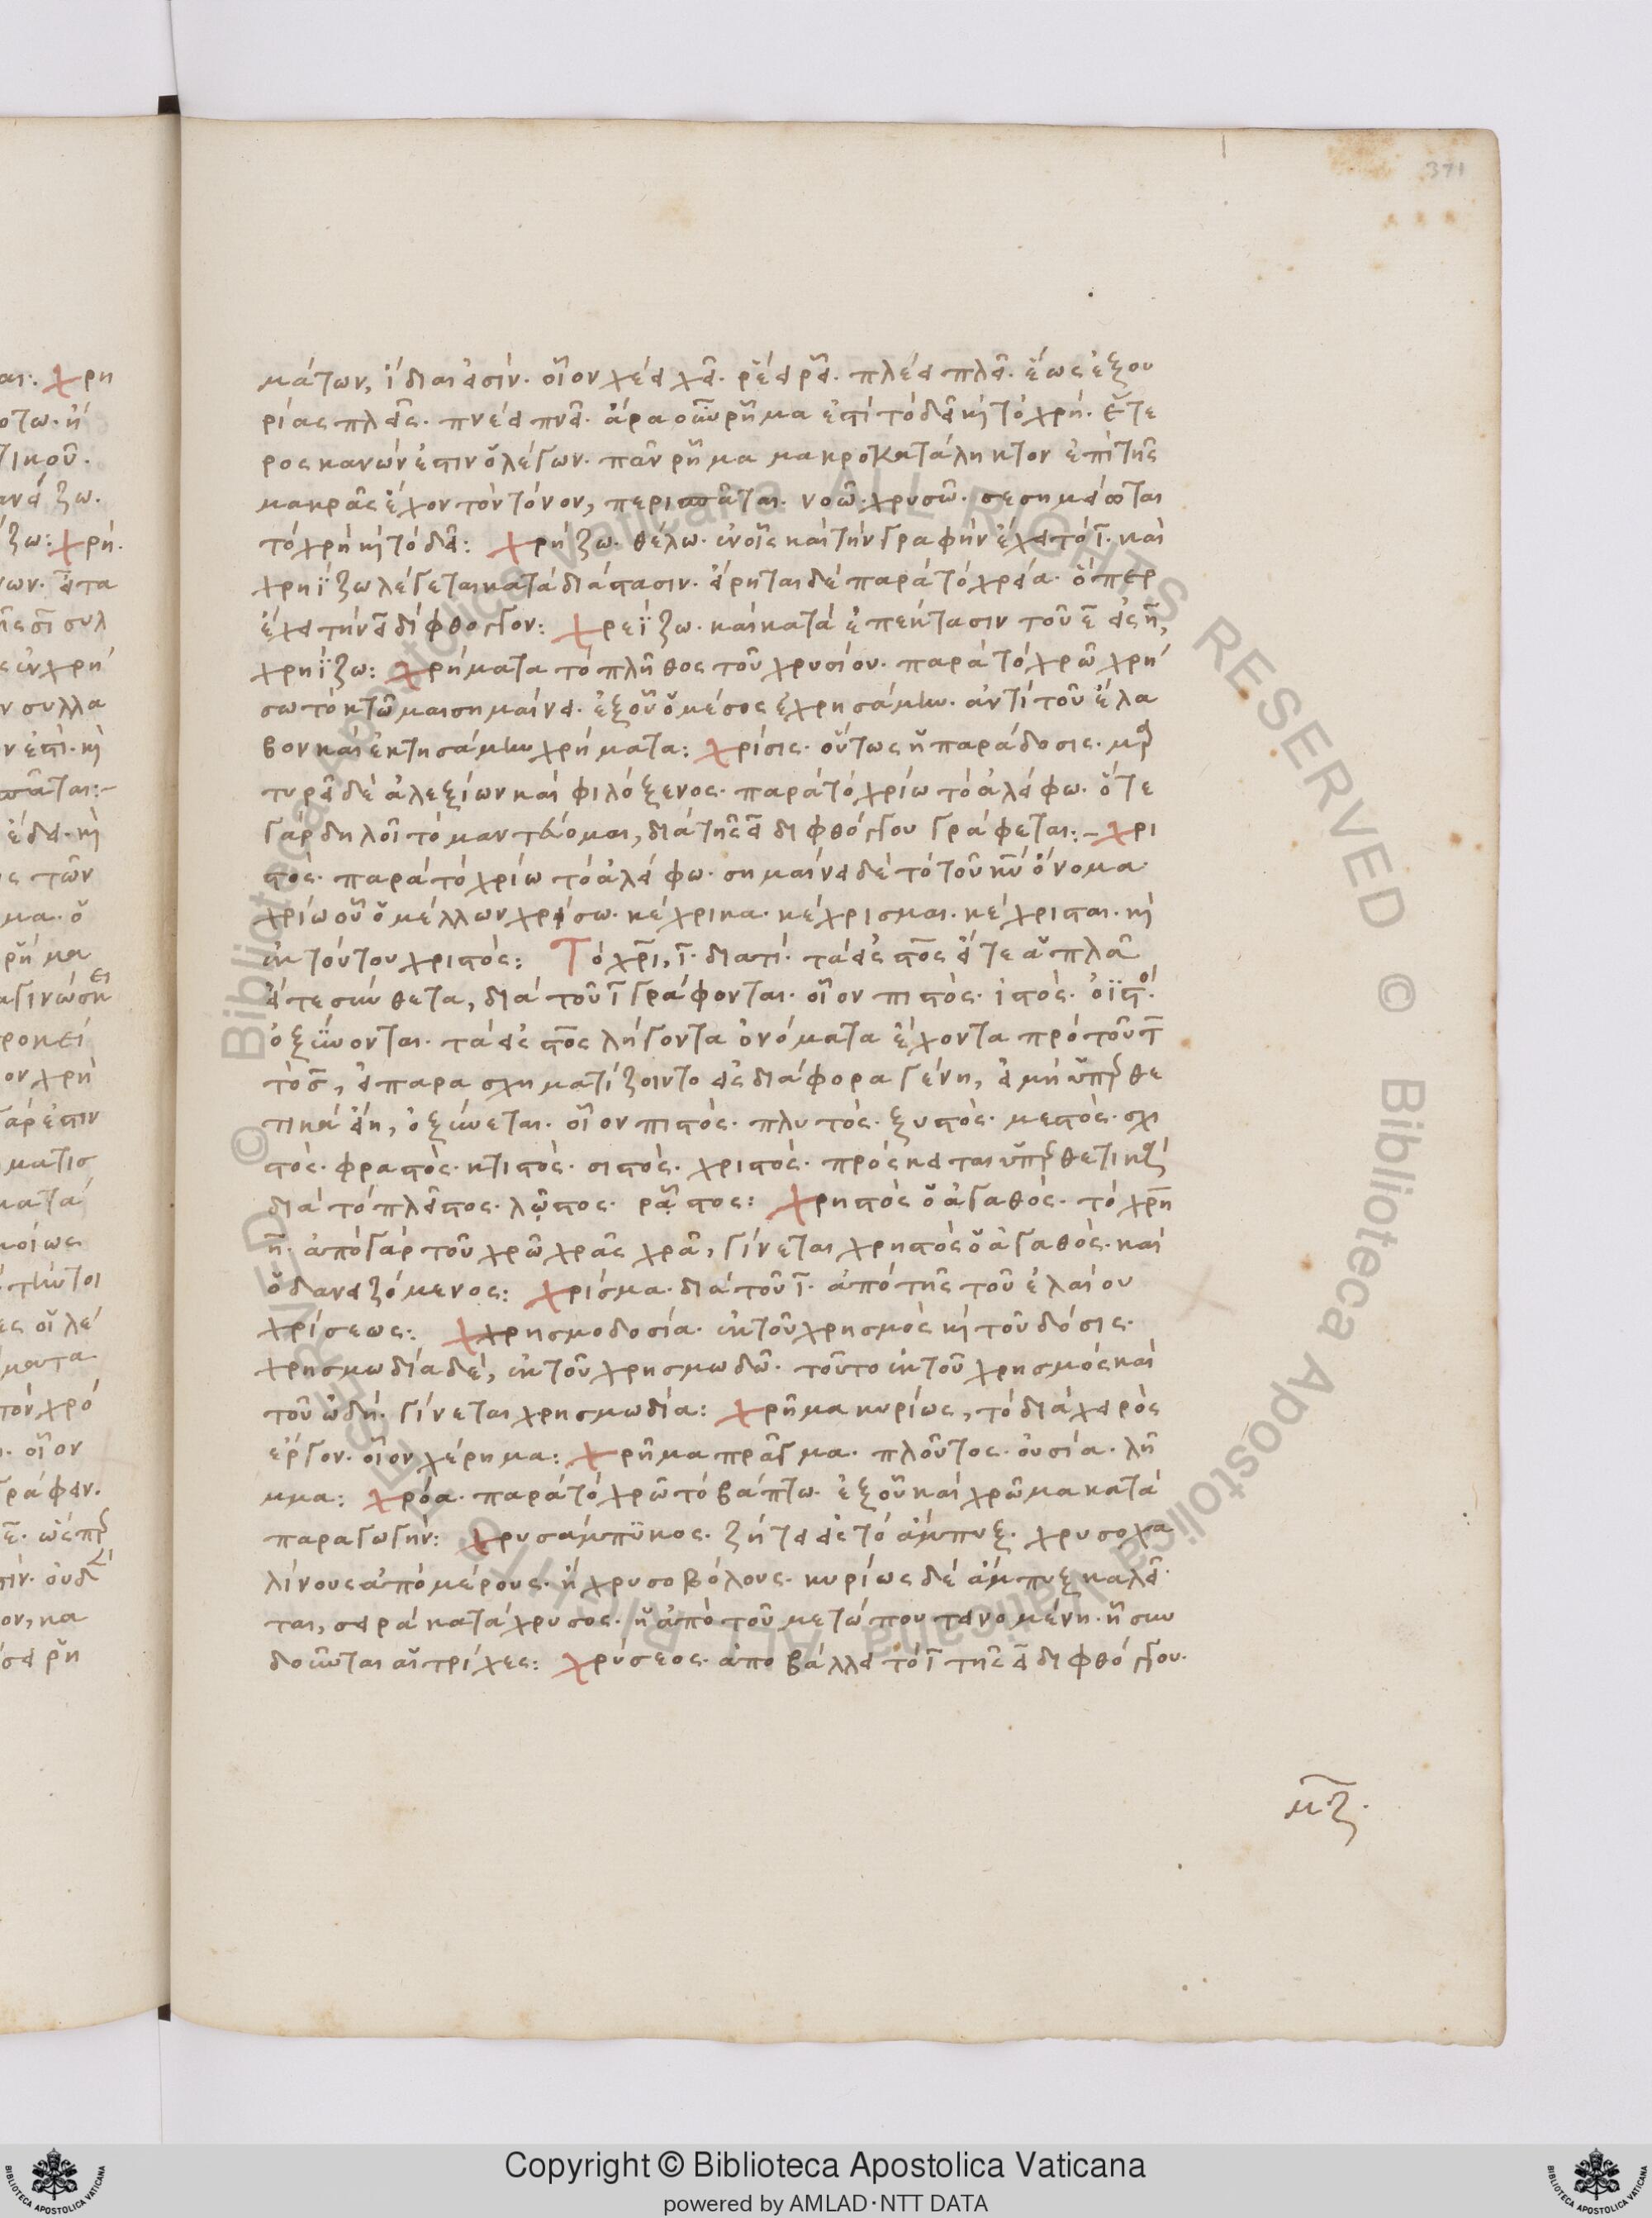 371
μάτων, ἴδιαι εἰσίν. οἷον χέει χεῖ. ῥέει ῥεῖ. πλέει πλεῖ. ἕως ἐξ οὐ
ρίας πλεῖς. πνέει πνεῖ. ἄρα οὖν ῥῆμα ἐστὶ τὸ δεῖ κ(αὶ) τὸ χρή. ἕτε
ρος κανών ἐστιν ὁ λέγων. πᾶν ῥῆμα μακροκατάληκτον ἐπὶ τῆς
μακρᾶς ἔχον τὸν τόνον, περισπᾶται. νοῶ. χρυσῶ. σεσημείωται
τὸ χρὴ κ(αὶ) τὸ δεῖ: χρήζω. θέλω. ἐν οἷς καὶ τὴν γραφὴν ἔχει τὸ ῑ. καὶ
χρηΐζω λέγεται κατὰ διάστασιν. εἴρηται δὲ παρὰ τὸ χρεία. ὅπερ
ἔχει τὴν ει δίφθογγον: χρεΐζω. καὶ κατὰ ἐπέκτασιν τοῦ ε̄ εἰς η̄,
χρηΐζω: χρήματα τὸ πλῆθος τοῦ χρυσίου. παρὰ τὸ χρῶ χρή
σω τὸ κτῶμαι σημαίνει. ἐξ οὗ ὁ μέσος ἐχρησάμην. ἀντὶ τοῦ ἔλα
βον καὶ ἐκτησάμην χρήματα: χρίσις. οὕτως ἡ παράδοσις. μρ
τυρεῖ δὲ ἀλεξίων καὶ φιλόξενος. παρὰ τὸ χρίω τὸ ἀλείφω. ὅτε
γὰρ δηλοῖ τὸ μαντεύομαι, διὰ τῆς ει διφθόγγου γράφεται:– χρι
στός. παρὰ τὸ χρίω τὸ ἀλείφω. σημαίνει δὲ τὸ τοῦ κ̅υ̅ ὄνομα.
χρίω οὗ ὁ μέλλων χρίσω. κέχρικα. κέχρισμαι. κέχρισται. κ(αὶ)
ἐκ τούτου χριστός: Τὸ χρι, ῑ. διατί. τὰ εἰς στος εἴτε ἁπλᾶ
εἴτε σύνθετα, διὰ τοῦ ῑ γράφονται. οἷον πιστός. ἱστός. ὀϊστό.
ὀξύνονται. τὰ εἰς στος λήγοντα ὀνόματα ἔχοντα πρὸ τοῦ τ̄
τὸ σ̄, εἰ παρασχηματίζοιντο εἰς διάφορα γένη, εἰ μὴ ὑπρθε
τικὰ εἴη, ὀξύνεται. οἷον πιστός. πλυτός. ξυστός. μεστός. σχι
στός. φραστός. κτιστός. σιστός. χριστός. πρόσκειται ὑπρθετικ
διὰ τὸ πλεῖστος. λῷστος. ῥᾷστος: χρηστὸς ὁ ἀγαθός. τὸ χρη
η̄. ἀπὸ γὰρ τοῦ χρῶ χρᾷς χρᾷ, γίνεται χρηστὸς ὁ ἀγαθός. καὶ
ὁ δανειζόμενος: χρίσμα. διὰ τοῦ ῑ. ἀπὸ τῆς τοῦ ἐλαίου
χρίσεως: χρησμοδοσία. ἐκ τοῦ χρησμὸς κ(αὶ) τοῦ δόσις.
χρησμωδία δέ, ἐκ τοῦ χρησμωδῶ. τοῦτο ἐκ τοῦ χρησμὸς καὶ
τοῦ ὠδή. γίνεται χρησμωδία: χρῆμα κυρίως, τὸ διὰ χειρὸς
ἔργον. οἷον χέρημα: χρῆμα πρᾶγμα. πλοῦτος. οὐσία. λῆ
μμα: χρόα. παρὰ τὸ χρῶ τὸ βάπτω. ἐξ οὗ καὶ χρῶμα κατὰ
παραγωγήν: χρυσάμπυκος. ζήτει εἰς τὸ ἄμπυξ. χρυσοχα
λίνους ἀπὸ μέρους. ἢ χρυσοβόλους. κυρίως δὲ ἄμπυξ καλεῖ
ται, σειρὰ κατάχρυσος. ἡ ἀπὸ τοῦ μετώπου τεινομένη. ἧ συν
δοῦνται αἱ τρίχες: χρύσεος. ἀποβάλλει τὸ ῑ τῆς ει διφθόγγου.
μζ.
Copyright © Biblioteca Apostolica Vaticana
powered by AMLAD·NTT DATA